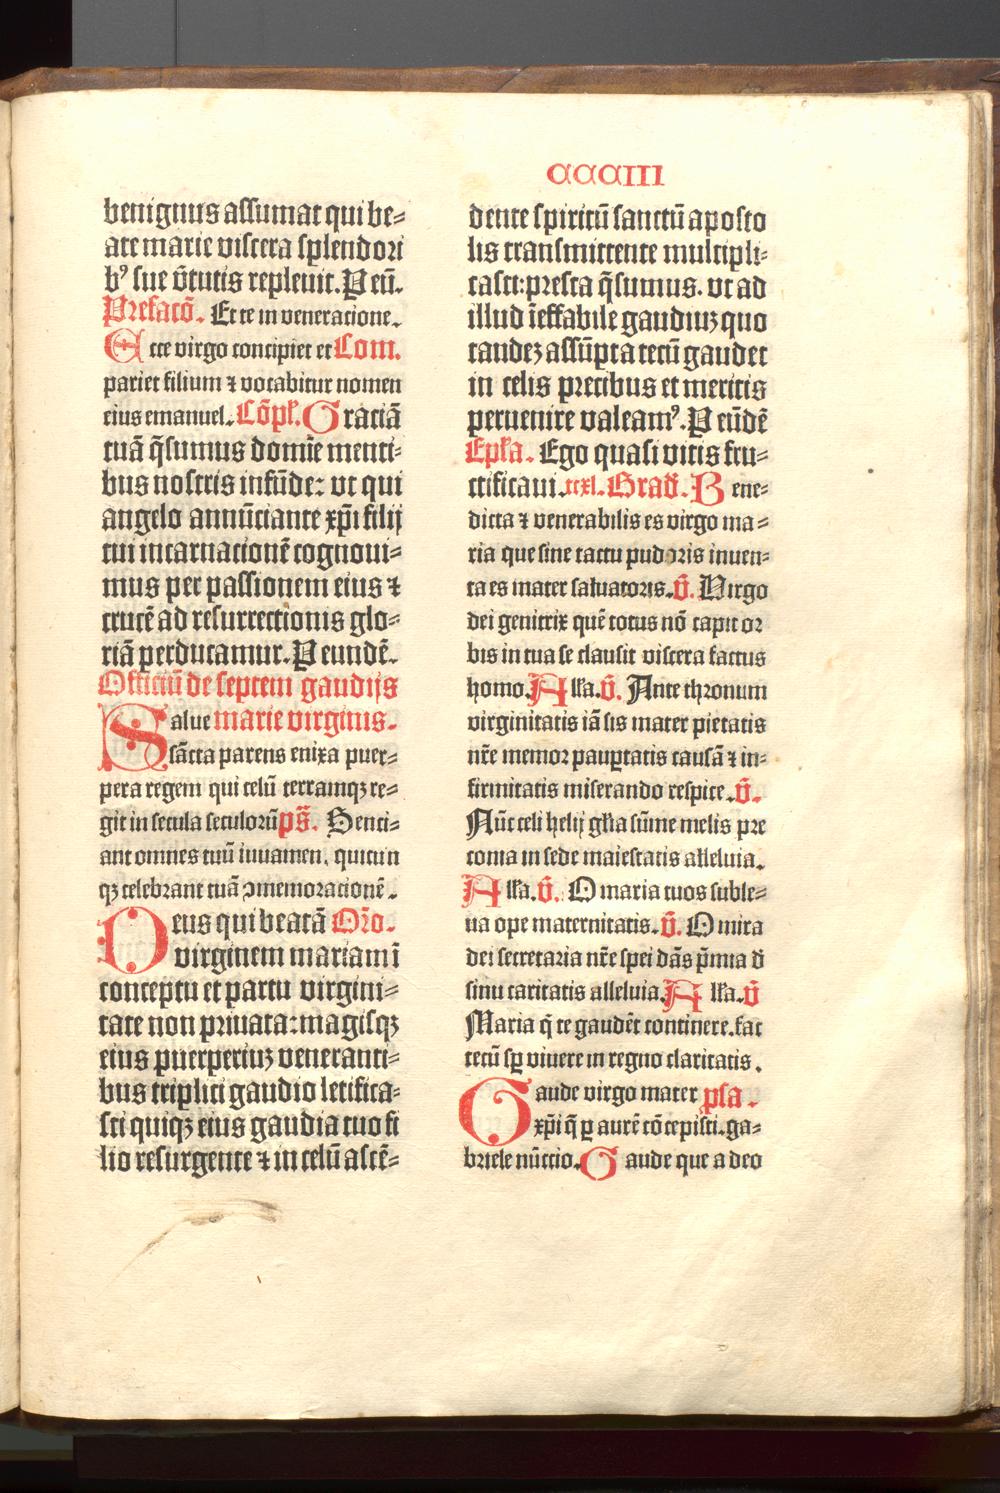 CCCIII
benignus assumat qui be⸗
ate marie viscera splendori
bꝰ sue v̄tutis repleuit. P eū.
Prefacō. Et te in veneracione.
E cce virgo concipiet et Com.
pariet filium ⁊ vocabitur nomen
eius emanuel. Cōpl̄. G raciā
tuā q̄sumus domīe menti⸗
bus nostris infūde: vt qui
angelo annūciante xp̄i filij
tui incarnacionē cognoui⸗
mus per passionem eius ⁊
crucē ad resurrectionis glo⸗
riā perducamur. P eundē.
Officiū de septem gaudijs
S alue marie virginis.
sācta parens enixa puer⸗
pera regem qui celū terramqꝫ re⸗
git in secula seculorū ps̄. Senci⸗
ant omnes tuū iuuamen, quicun
qꝫ celebrant tuā ꝯmemoracionē.
D eus qui beatā Or̄o.
virginem mariam ī
conceptu et partu virgini⸗
tate non priuata: magisqꝫ
eius puerperiuꝫ veneranti⸗
bus triplici gaudio letifica⸗
sti quiqꝫ eius gaudia tuo fi
lio resurgente ⁊ in celū ascē⸗
dente spiritū sanctū aposto
lis transmittente multipli⸗
casti: presta q̄sumus. vt ad
illud īeffabile gaudiuꝫ quo
tandeꝫ assūpta tecū gaudet
in celis precibus et meritis
peruenire valeamꝰ. P eūdē
Epl̄a. Ego quasi vitis fru⸗
ctificaui. ccxl. Grad̄. B ene⸗
dicta ⁊ venerabilis es virgo ma⸗
ria que sine tactu pudoris inuen⸗
ta es mater saluatoris. v̄. Virgo
dei genitrix quē totus nō capit or
bis in tua se clausit viscera factus
homo. A ll̄a. v̄. Ante thronum
virginitatis iā sis mater pietatis
nr̄e memor pauꝑtatis causā ⁊ in⸗
firmitatis miserando respice. v̄.
Nūc celi helij gl̄ia sūme melis pre
conia in sede maiestatis alleluia.
A ll̄a. v̄. O maria tuos suble⸗
ua ope maternitatis. v̄. O mira
dei secretaria nr̄e spei dās p̄mia d̄
sinu caritatis alleluia. A ll̄a. v̄
Maria q̄ te gaudēt continere. fac
tecū sꝑ viuere in regno claritatis.
G aude virgo mater psa.
xp̄i q̄ ꝑ aurē cōcepisti. ga⸗
briele nūccio. G aude que a deo